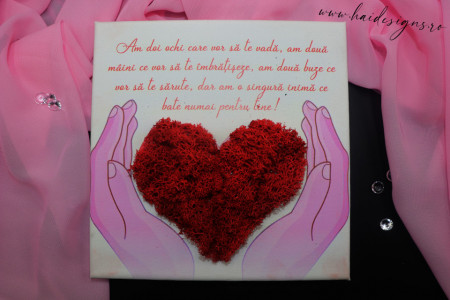 www.haidesigns.ro
Am doi ochi care vor să te vadă, am două
mâini ce vor să te îmbrățișeze, am două buze ce
vor să te sărute, dar am o singură inimă ce
bate numai pentru tine!